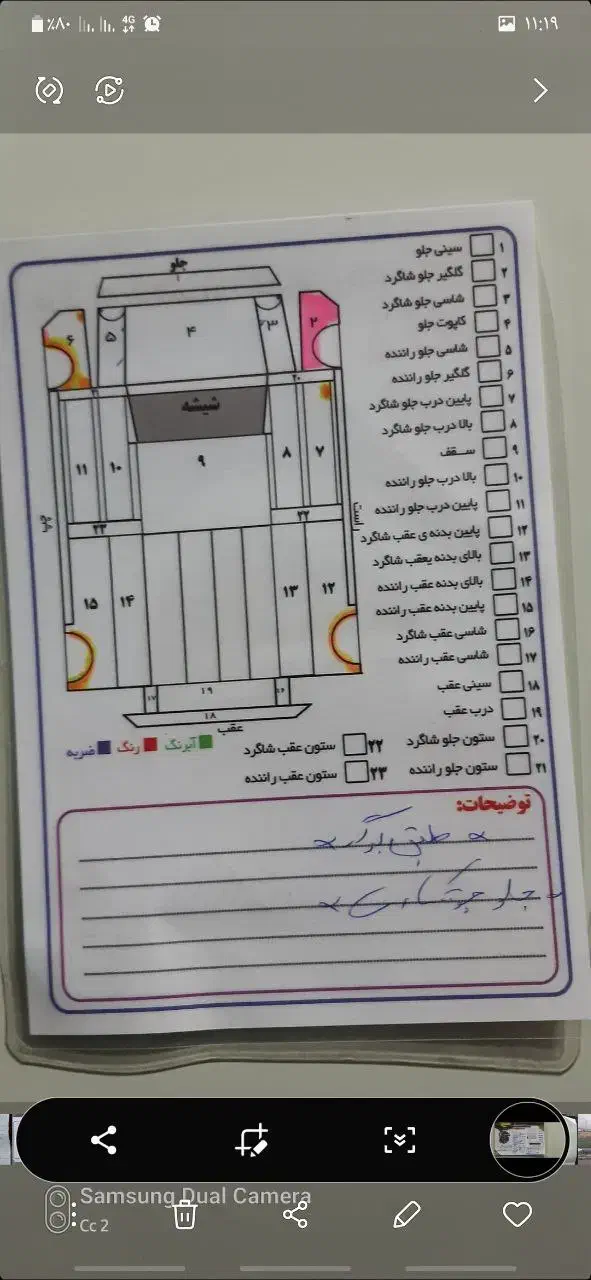 ٪۸۰ 4G ۱۱:۱۹
جلو
۱ سینی جلو
۲ گلگیر جلو شاگرد
۳ شاسی جلو شاگرد
۴ کاپوت جلو
۵ شاسی جلو راننده
۶ گلگیر جلو راننده
۷ پایین درب جلو شاگرد
۸ بالا درب جلو شاگرد
۹ سقف
۱۰ بالا درب جلو راننده
۱۱ پایین درب جلو راننده
۱۲ پایین بدنه ی عقب شاگرد
۱۳ بالای بدنه یعقب شاگرد
۱۴ بالای بدنه عقب راننده
۱۵ پایین بدنه عقب راننده
۱۶ شاسی عقب شاگرد
۱۷ شاسی عقب راننده
۱۸ سینی عقب
۱۹ درب عقب
۲۰ ستون جلو شاگرد
۲۱ ستون جلو راننده
۲۲ ستون عقب شاگرد
۲۳ ستون عقب راننده
۲ ۳ ۴ ۵ ۶
۲۰ ۲۱
شیشه
۷ ۸ ۹ ۱۰ ۱۱
راست
چپ
۲۲ ۲۳
۱۲ ۱۳ ۱۴ ۱۵
۱۶ ۱۹ ۱۷
۱۸
عقب
آبرنگ رنگ ضربه
توضیحات:
طبق برگ
جلو چپ
Samsung Dual Camera
Cc 2